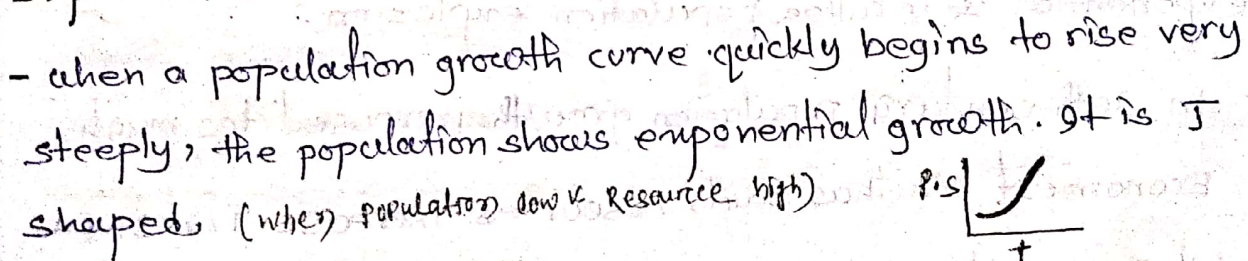 - when a population growth curve quickly begins to rise very
steeply, the population shows exponential growth. It is J
shaped, (when population low & Resource high) P.S
t